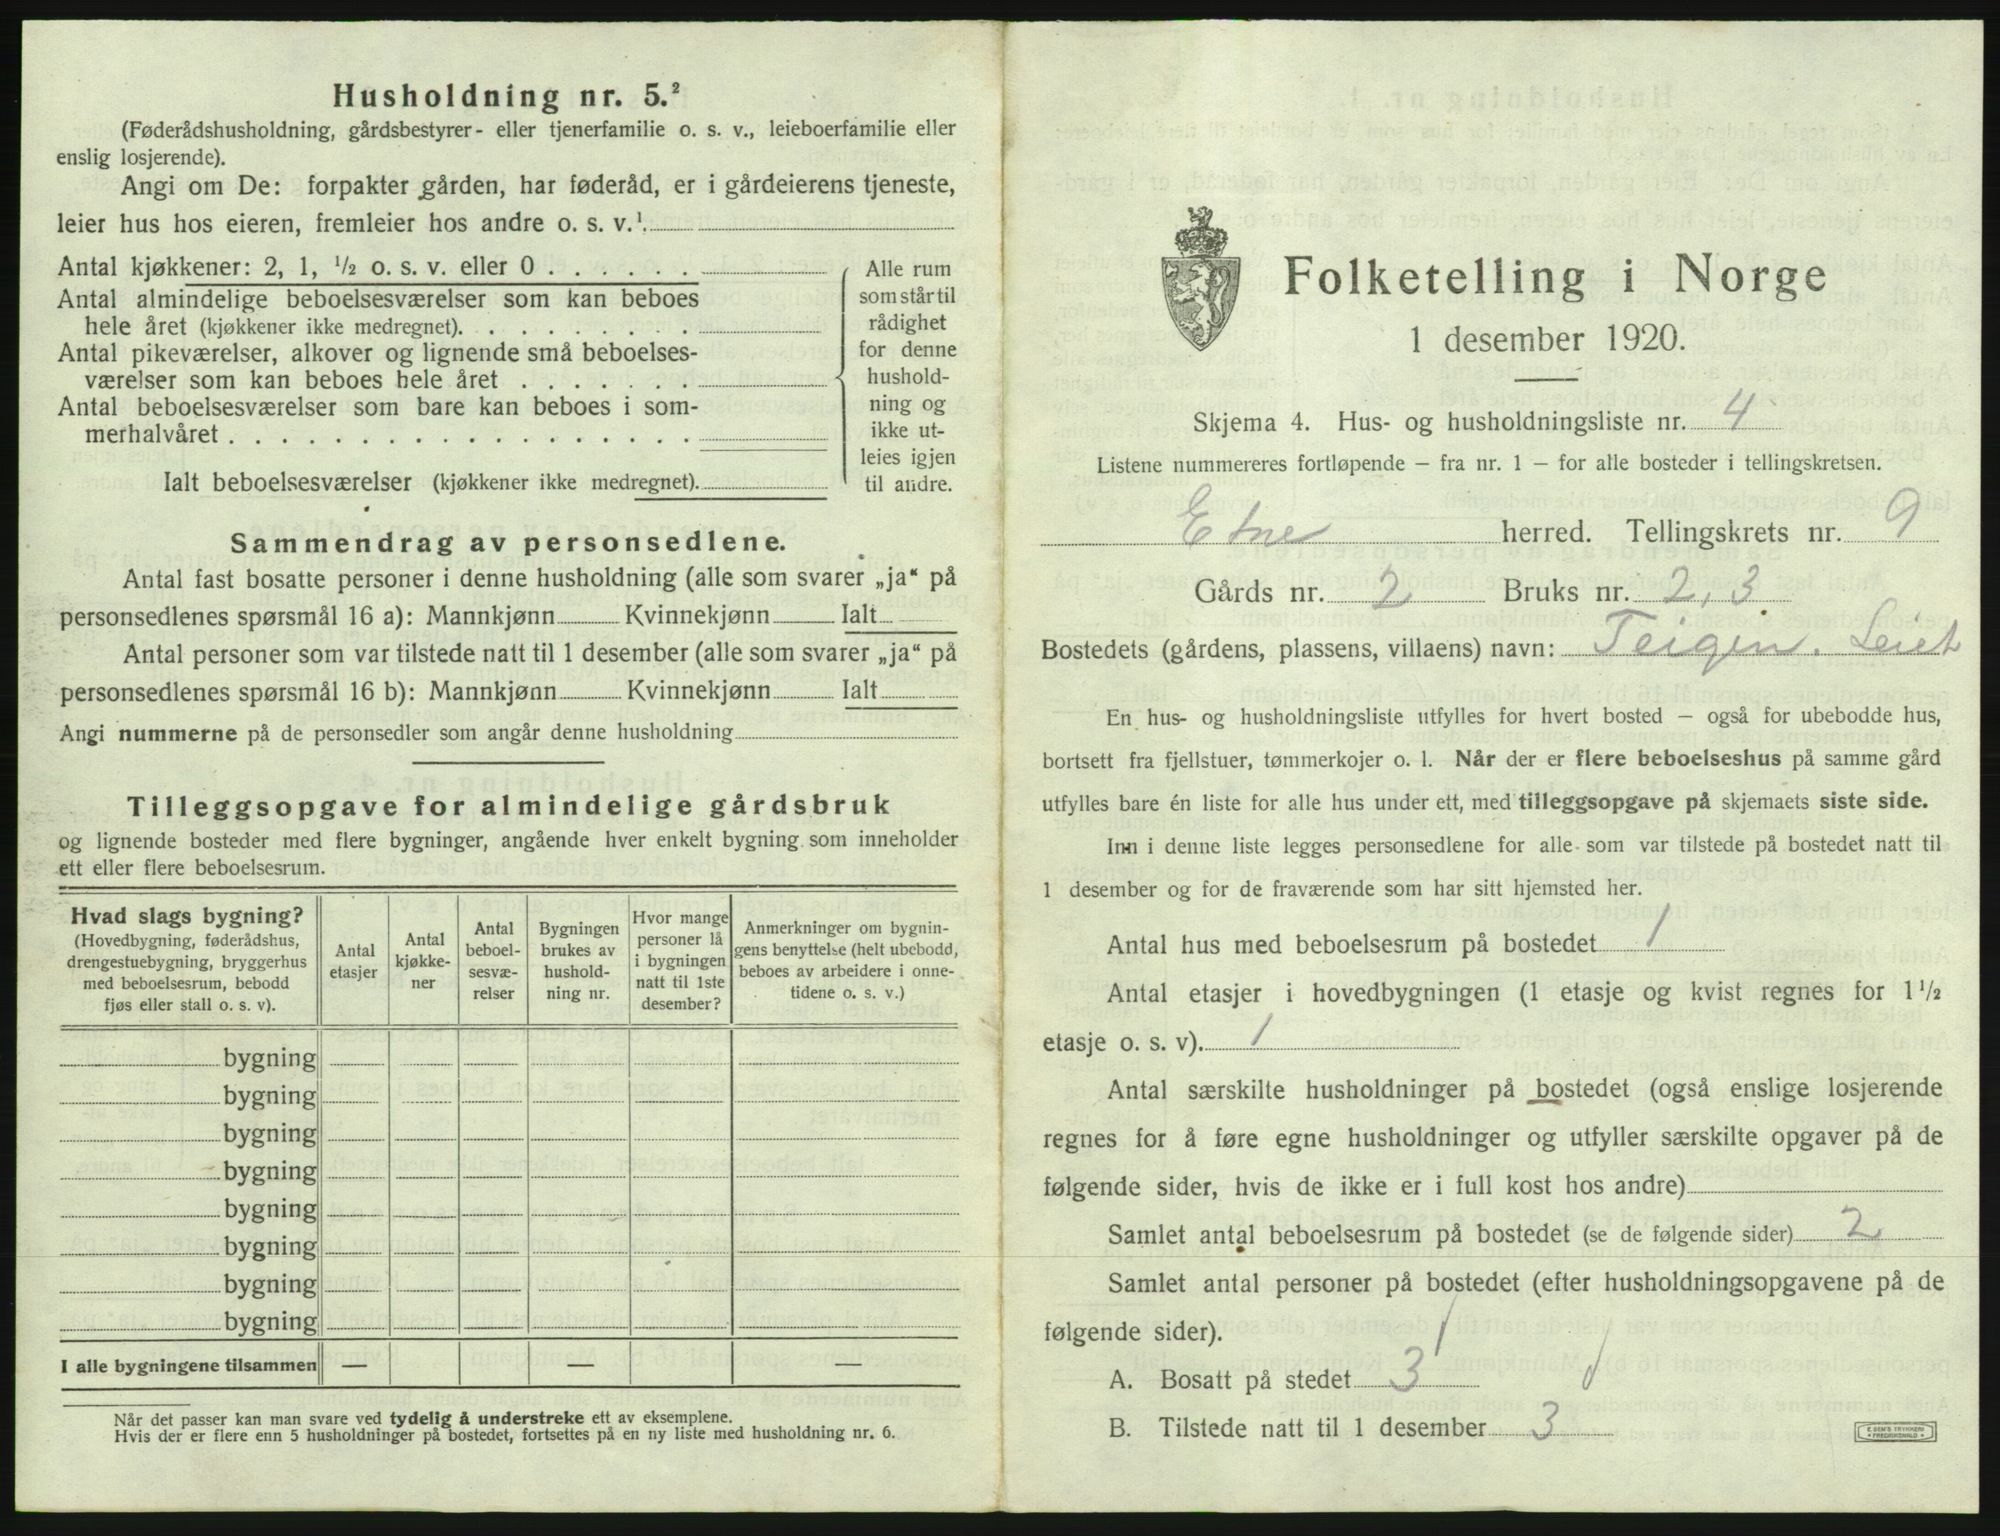 Husholdning nr. 5.²
(Føderådshusholdning, gårdsbestyrer- eller tjenerfamilie o. s. v., leieboerfamilie eller
enslig losjerende).
Angi om De: forpakter gården, har føderåd, er i gårdeierens tjeneste,
leier hus hos eieren, fremleier hos andre o. s. v.¹
Antal kjøkkener: 2, 1, ½ o. s. v. eller 0 . . . . . .
Antal almindelige beboelsesværelser som kan beboes
hele året (kjøkkener ikke medregnet). . . . . . . . .
Antal pikeværelser, alkover og lignende små beboelses-
værelser som kan beboes hele året . . . . . . .
Antal beboelsesværelser som bare kan beboes i som-
merhalvåret . . . . . . . . . . . . . . . . .
Ialt beboelsesværelser (kjøkkener ikke medregnet).
Alle rum
som står til
rådighet
for denne
hushold-
ning og
ikke ut-
leies igjen
til andre.
Sammendrag av personsedlene.
Antal fast bosatte personer i denne husholdning (alle som svarer „ja“ på
personsedlenes spørsmål 16 a): Mannkjønn Kvinnekjønn Ialt
Antal personer som var tilstede natt til 1 desember (alle som svarer „ja“ på
personsedlenes spørsmål 16 b): Mannkjønn Kvinnekjønn Ialt
Angi nummerne på de personsedler som angår denne husholdning
Tilleggsopgave for almindelige gårdsbruk
og lignende bosteder med flere bygninger, angående hver enkelt bygning som inneholder
ett eller flere beboelsesrum.
Hvad slags bygning?
(Hovedbygning, føderådshus,
drengestuebygning, bryggerhus
med beboelsesrum, bebodd
fjøs eller stall o. s. v).
Antal
etasjer
Antal
kjøkke-
ner
Antal
beboel-
sesvæ-
relser
Bygningen
brukes av
hushold-
ning nr.
Hvor mange
personer lå
i bygningen
natt til 1ste
desember?
Anmerkninger om bygnin-
gens benyttelse (helt ubebodd,
beboes av arbeidere i onne-
tidene o. s. v.)
bygning
bygning
bygning
bygning
bygning
bygning
bygning
bygning
I alle bygningene tilsammen — — —
Når det passer kan man svare ved tydelig å understreke ett av eksemplene.
Hvis der er flere enn 5 husholdninger på bostedet, fortsettes på en ny liste med husholdning nr. 6.
Folketelling i Norge
1 desember 1920.
Skjema 4. Hus- og husholdningsliste nr. 4
Listene nummereres fortløpende – fra nr. 1 – for alle bosteder i tellingskretsen.
Etne herred. Tellingskrets nr. 9
Gårds nr. 2 Bruks nr. 2, 3
Bostedets (gårdens, plassens, villaens) navn: Teigen. Leiet
En hus- og husholdningsliste utfylles for hvert bosted – også for ubebodde hus,
bortsett fra fjellstuer, tømmerkojer o. l. Når der er flere beboelseshus på samme gård
utfylles bare én liste for alle hus under ett, med tilleggsopgave på skjemaets siste side.
Inn i denne liste legges personsedlene for alle som var tilstede på bostedet natt til
1 desember og for de fraværende som har sitt hjemsted her.
Antal hus med beboelsesrum på bostedet 1
Antal etasjer i hovedbygningen (1 etasje og kvist regnes for 1½
etasje o. s. v). 1
Antal særskilte husholdninger på bostedet (også enslige losjerende
regnes for å føre egne husholdninger og utfyller særskilte opgaver på de
følgende sider, hvis de ikke er i full kost hos andre)
Samlet antal beboelsesrum på bostedet (se de følgende sider) 2
Samlet antal personer på bostedet (efter husholdningsopgavene på de
følgende sider).
A. Bosatt på stedet 3
B. Tilstede natt til 1 desember 3